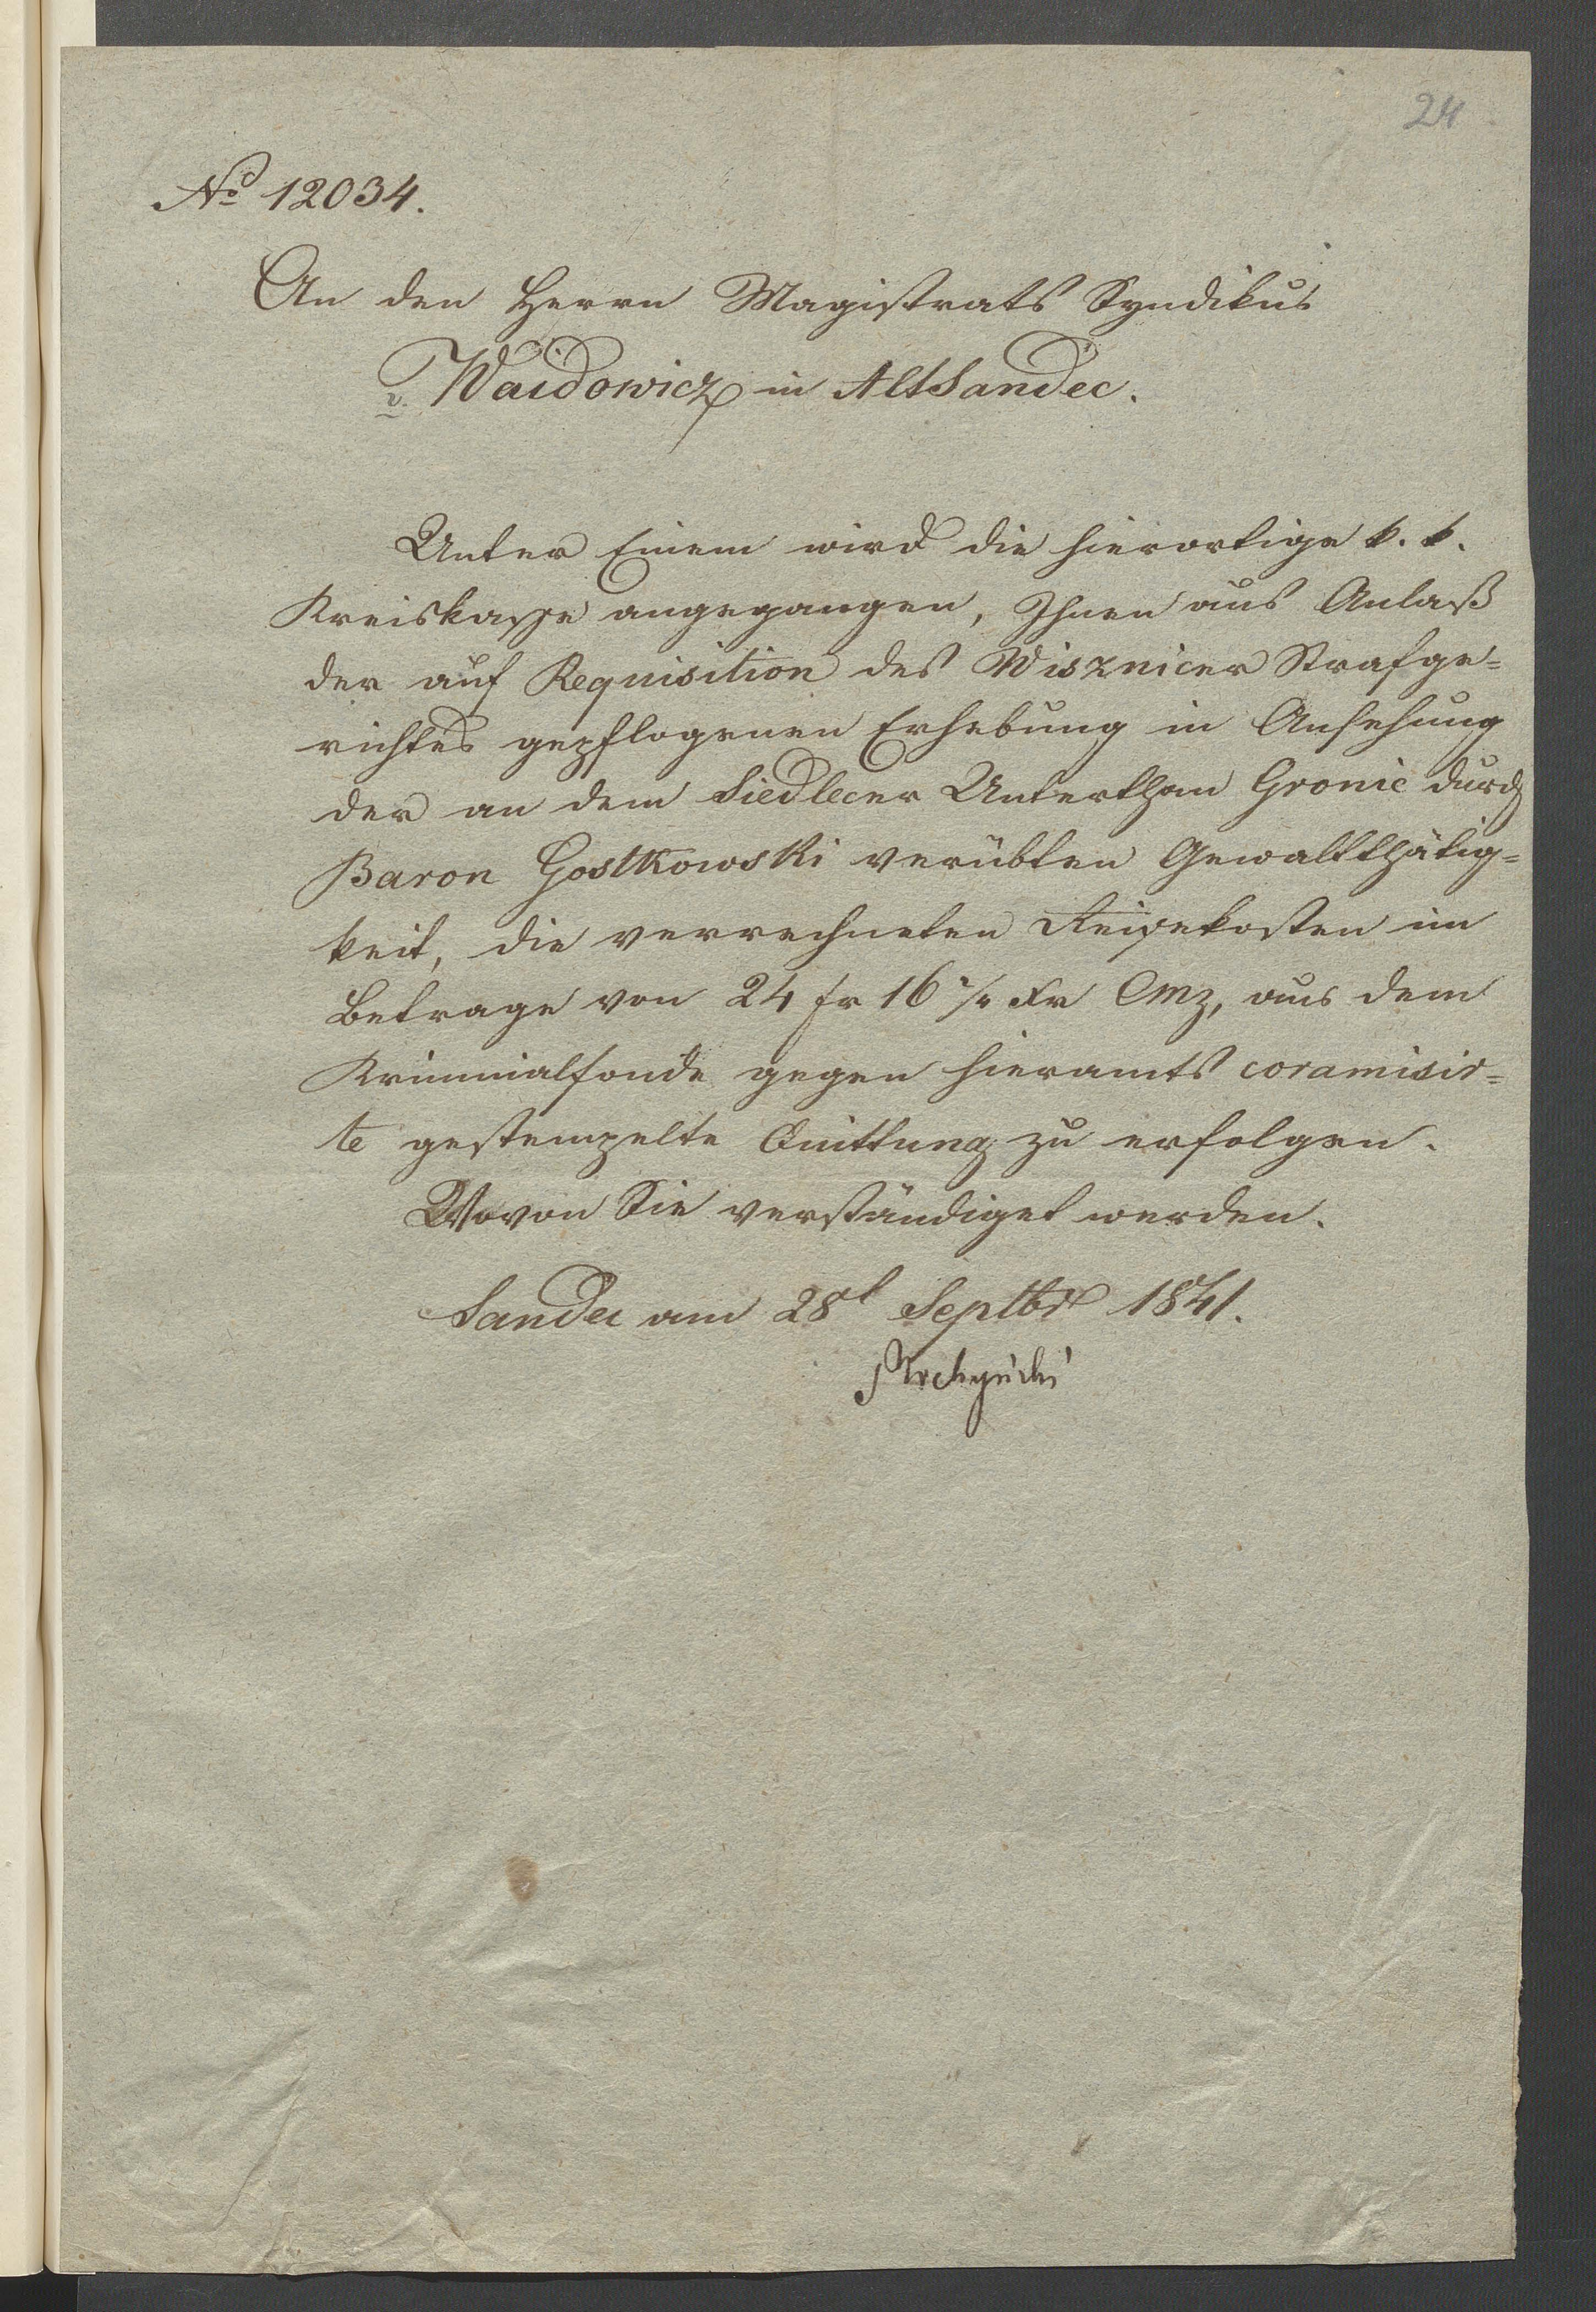 24
No 12034.
An den Herrn Magistrats Syndikus
v. Waidowicz in AltSandec.
Unter Einem wird die hierortige k. k.
Kreiskasse angegangen, Ihnen aus Anlaß
der auf Requisition des Wisznicer Strafge=
richtes gepflogenen Erhebung in Ansehung
der an dem Siedlecer Unterthan Gronic durch
Baron Gostkowski verübten Gewaltthätig=
keit, die verrechneten Reisekosten im
Betrage von 24 fr 16 xr CMz, aus dem
Kriminalfonde gegen hieramts coramisir=
te gestempelte Quittung zu erfolgen.
Wovon Sie verständiget werden.
Sandec am 28t Septbr 1841.